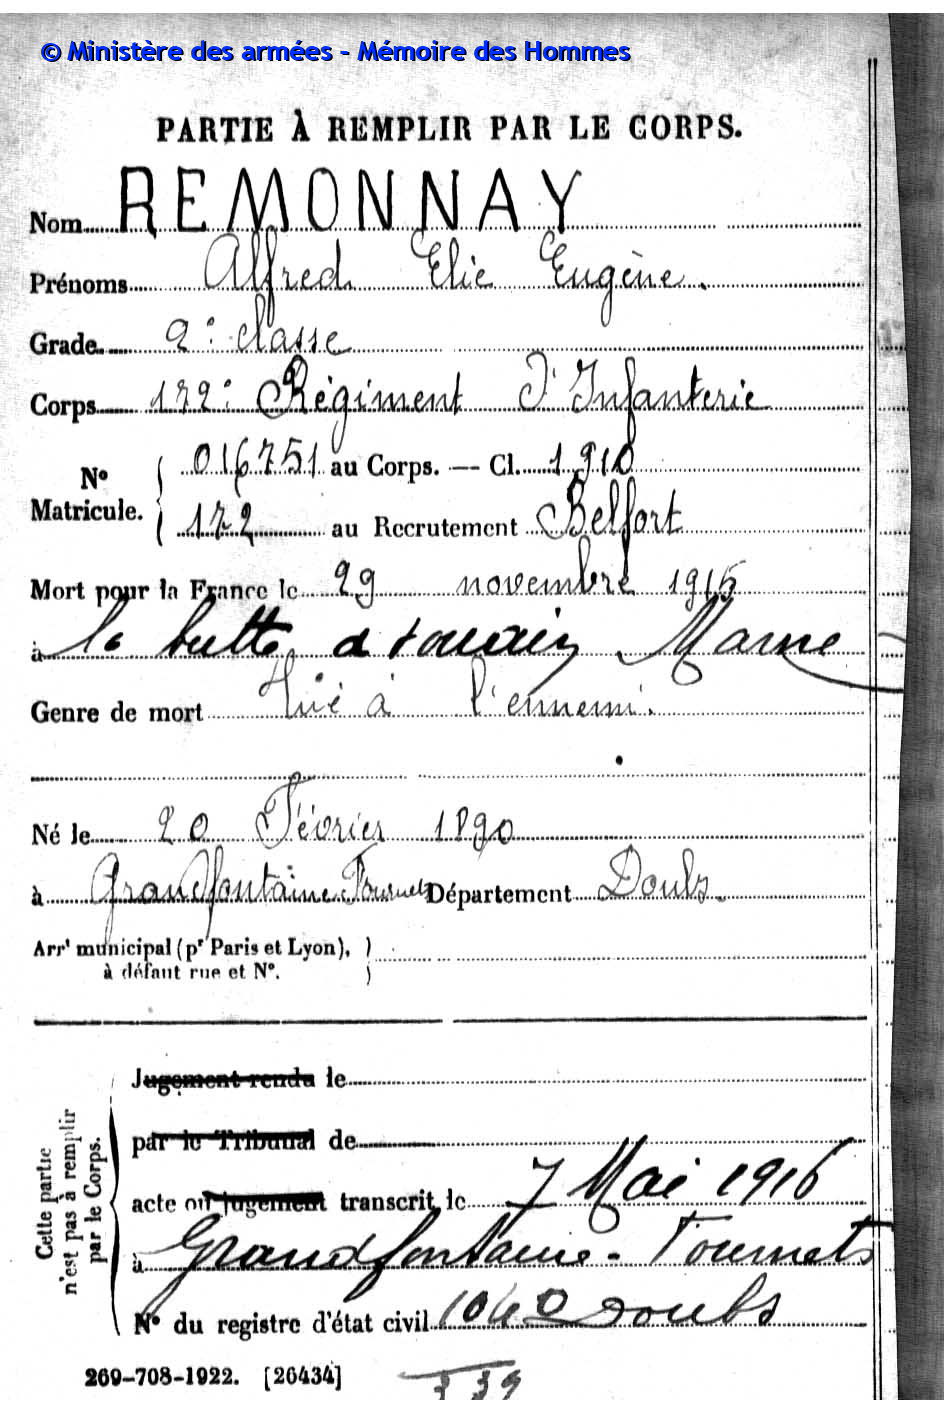 © Ministère des armées - Mémoire des Hommes
PARTIE À REMPLIR PAR LE CORPS.
Nom REMONNAY
Prénoms Alfred Elie Eugène.
Grade 2e classe
Corps 172e Régiment d'Infanterie
No Matricule. 016751 au Corps. — Cl. 1910
172 au Recrutement Belfort
Mort pour la France le 29 novembre 1915
à la butte de souain Marne
Genre de mort Tué à l'ennemi.
Né le 20 Février 1890
à Grandfontaine Fournets Département Doubs.
Arrt municipal (pr Paris et Lyon),
à défaut rue et No.
Cette partie
n'est pas à remplir
par le Corps.
Jugement rendu le
par le Tribunal de
acte ou jugement transcrit le 7 Mai 1916
à Grandfontaine-Fournets
No du registre d'état civil Doubs
269-708-1922. [26434]